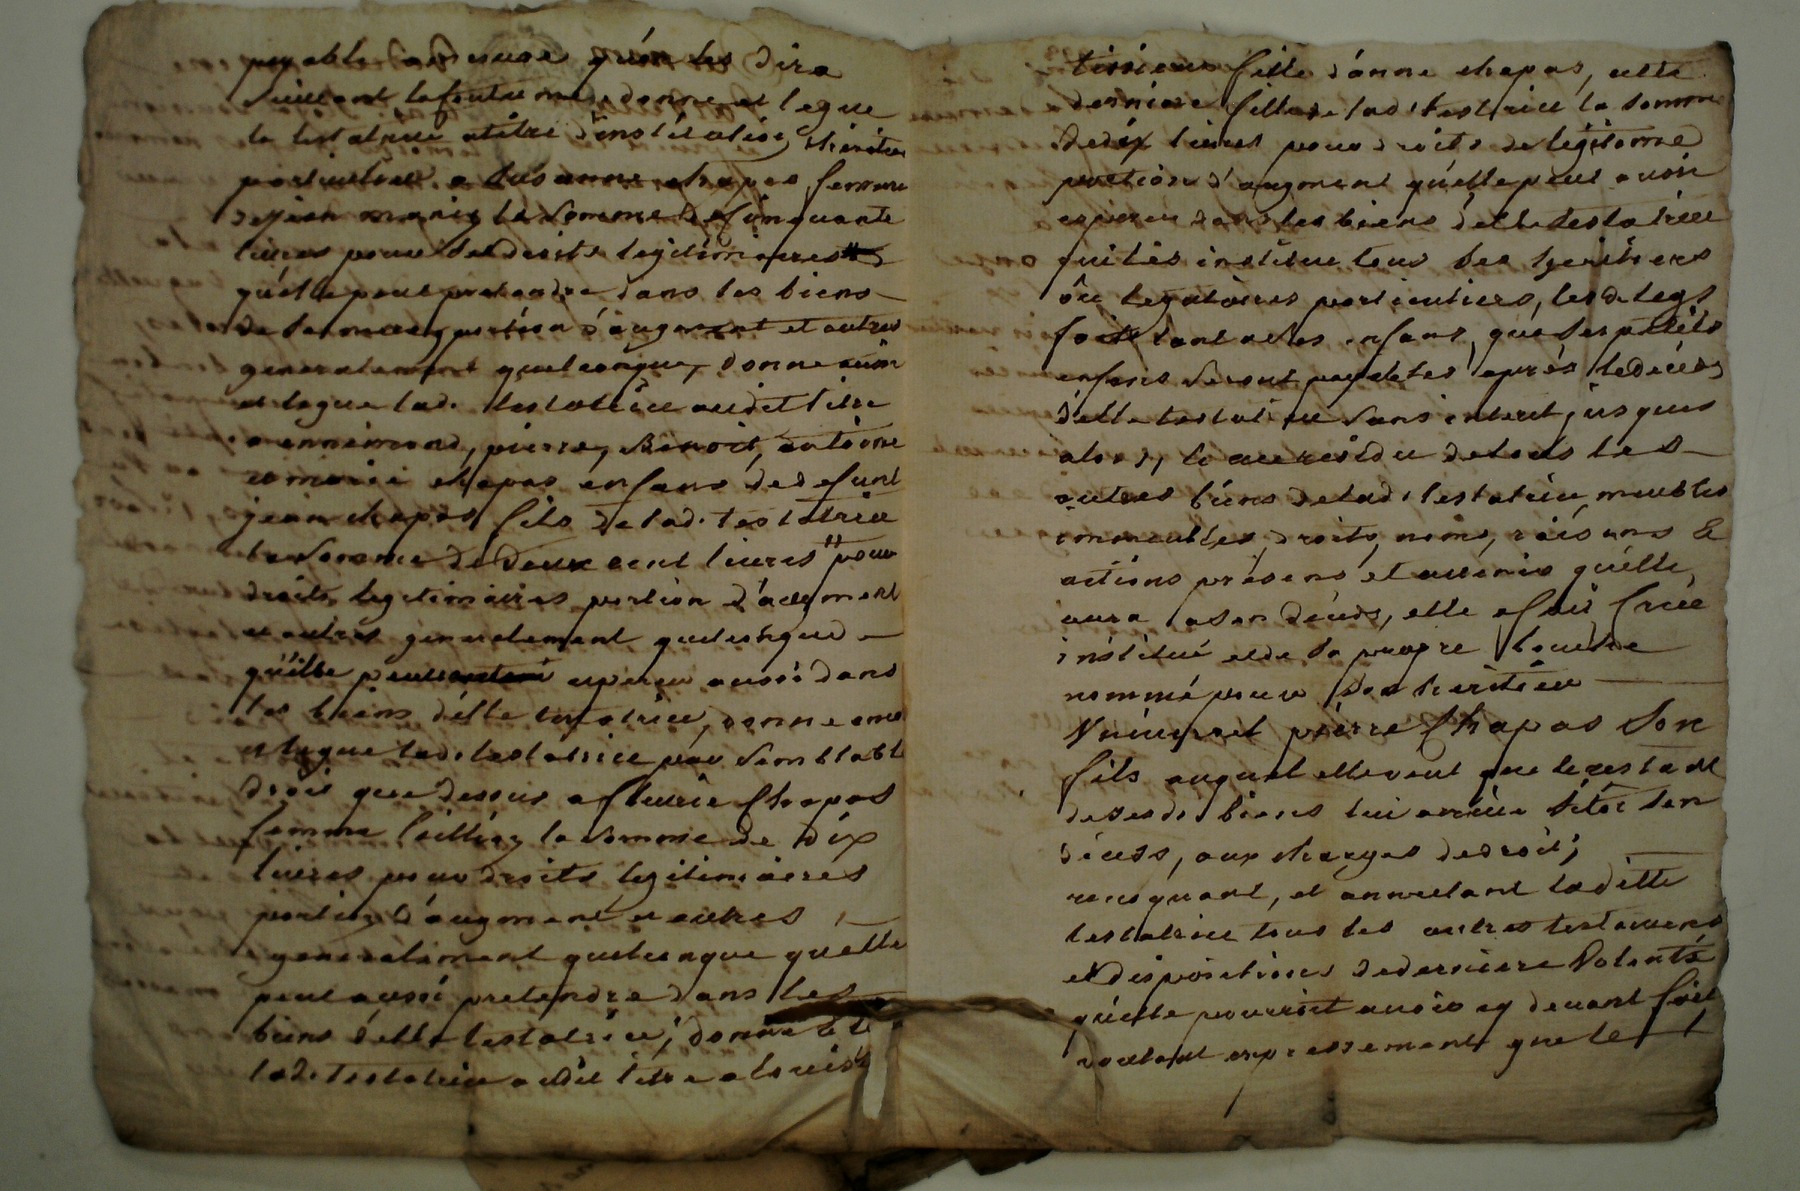 payable a mesure qu'on les dira
suivant la coutume, donne et legue
la testatrice a titre d'institution héréditaire
particuliere a Susanne chapas femme
de jean la somme de cinquante
livres pour ses droits legitimaires
qu'elle peut pretendre dans les biens
de sa mere, portion d'augment et autres
generalement quelconque, donne aussi
et legue lad. testatrice audit titre
a ennémond, pierre, Benoit, antoine
et marie chapas enfans de defunt
jean chapas fils de lad. testatrice
la somme de deux cent livres pour
droits legitimaires portion d'augment
et autres generalement quelconque
qu'ils peuvent esperer aussi dans
les biens d'elle testatrice, donne
et legue lad. testatrice par semblable
droit que dessus a fleurie Chapas
femme la somme de dix
livres pour droits legitimaires
portion d'augment et autres
generalement quelconque qu'elle
peut aussi pretendre dans les
biens d'elle testatrice; donne et l
lad. testatrice audit titre a louise
fille d'anne chapas, cette
derniere fille de lad. testatrice la somme
de dix livres pour droits de legitime
portion d'augment qu'elle peut avoir
esperer dans les biens d'elle testatrice
qui les institue tous ses heritiers
ou legataires particuliers, lesd. legs
fait tant a ses enfans, que ses petits
enfans seront payables après le decès
d'elle testatrice sans interet jusques
alors, le au residu de tous les
autres biens de lad. testatrice, meubles
immeubles, droits, noms, raisons &
actions présens et avenir qu'elle
aura a son décès, elle a fait créé
institué et de sa propre bouche
nommé pour son heritier
Universel pierre Chapas son
fils auquel elle veut que le restant
de sesd. biens lui arrive sitot son
décès, aux charges de droit;
revoquant, et annullant laditte
testatrice tous les autres testamens
et dispositions de derniere Volonté
qu'elle pourroit avoir cy devant fait
voulant expressement que le